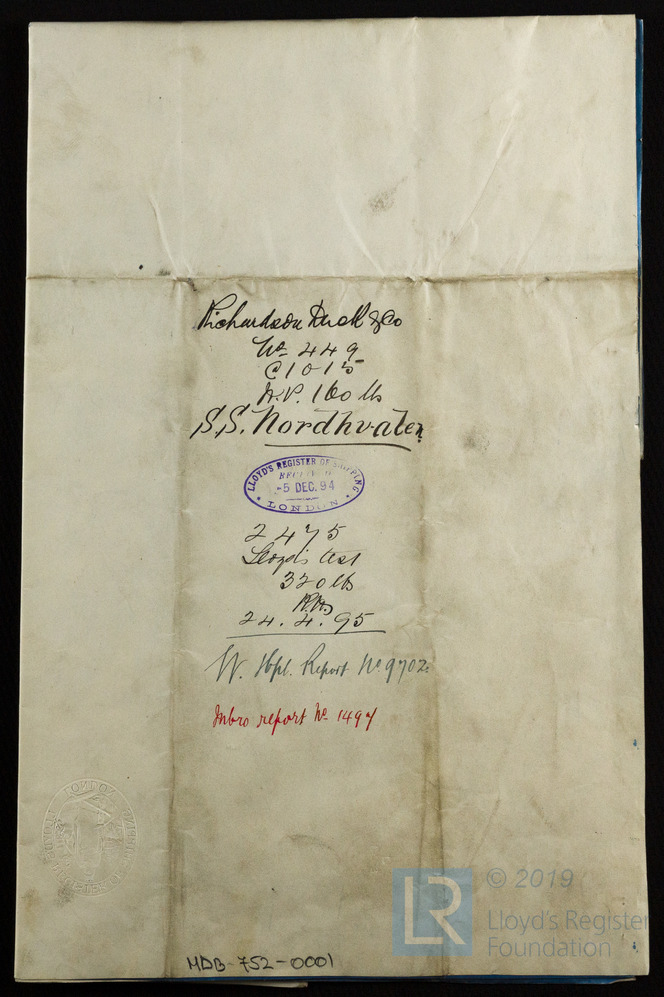 Richardson Duck & Co
No 449
@ 1015
W.P. 160 lbs
S.S. Nordhvalen
LLOYD'S REGISTER OF SHIPPING
RECEIVED
-5 DEC. 94
LONDON
2475
Lloyd's test
320 lbs
24.4.95
W. Hpl. Report No 9702
Mbro report No 1497
MDB-752-0001
LR
© 2019
Lloyd's Register
Foundation